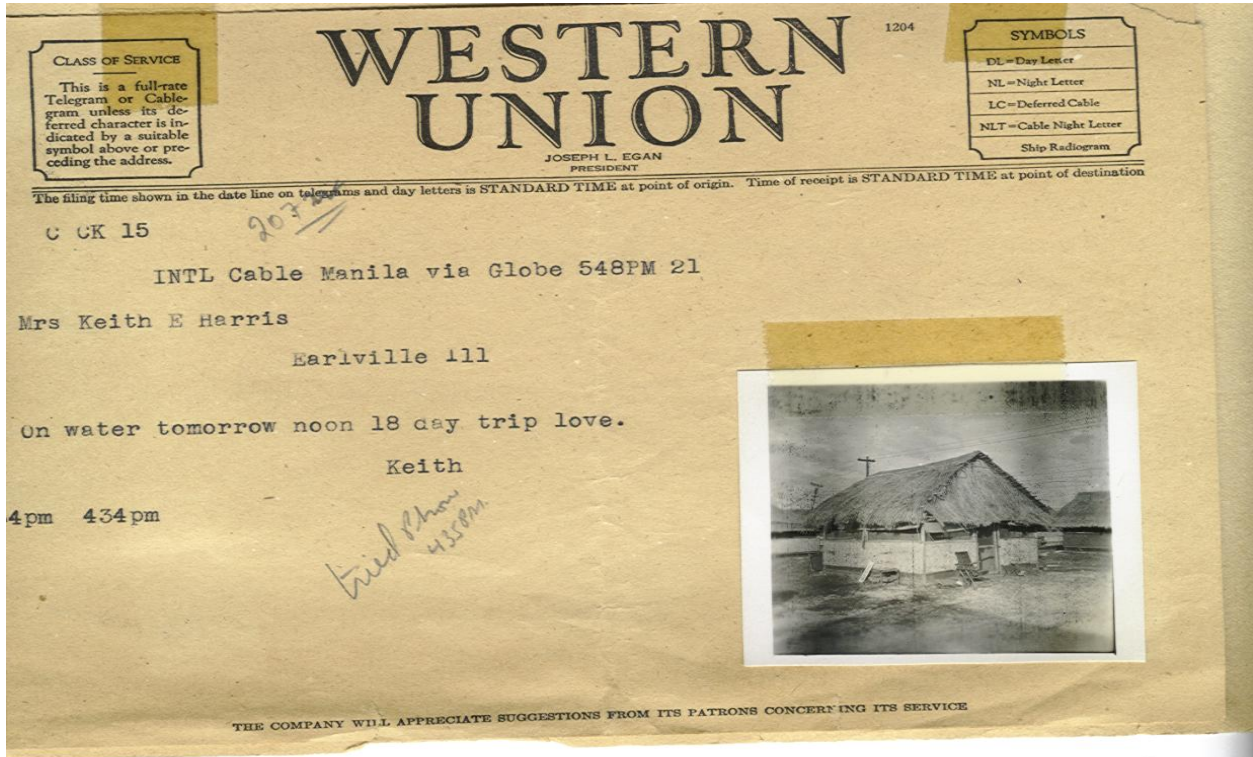 CLASS OF SERVICE
This is a full-rate
Telegram or Cable-
gram unless its de-
ferred character is in-
dicated by a suitable
symbol above or pre-
ceding the address.
WESTERN
UNION
1204
JOSEPH L. EGAN
PRESIDENT
SYMBOLS
DL=Day Letter
NL=Night Letter
LC=Deferred Cable
NLT=Cable Night Letter
Ship Radiogram
The filing time shown in the date line on telegrams and day letters is STANDARD TIME at point of origin. Time of receipt is STANDARD TIME at point of destination
207
CK 15
INTL Cable Manila via Globe 548PM 21
Mrs Keith E Harris
Earlville Ill
On water tomorrow noon 18 day trip love.
Keith
4pm 434pm
tried phone
435PM.
THE COMPANY WILL APPRECIATE SUGGESTIONS FROM ITS PATRONS CONCERNING ITS SERVICE